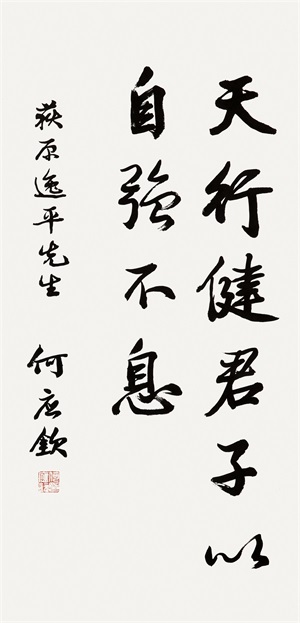 天行健君子以
自強不息
萩原逸平先生
何应欽